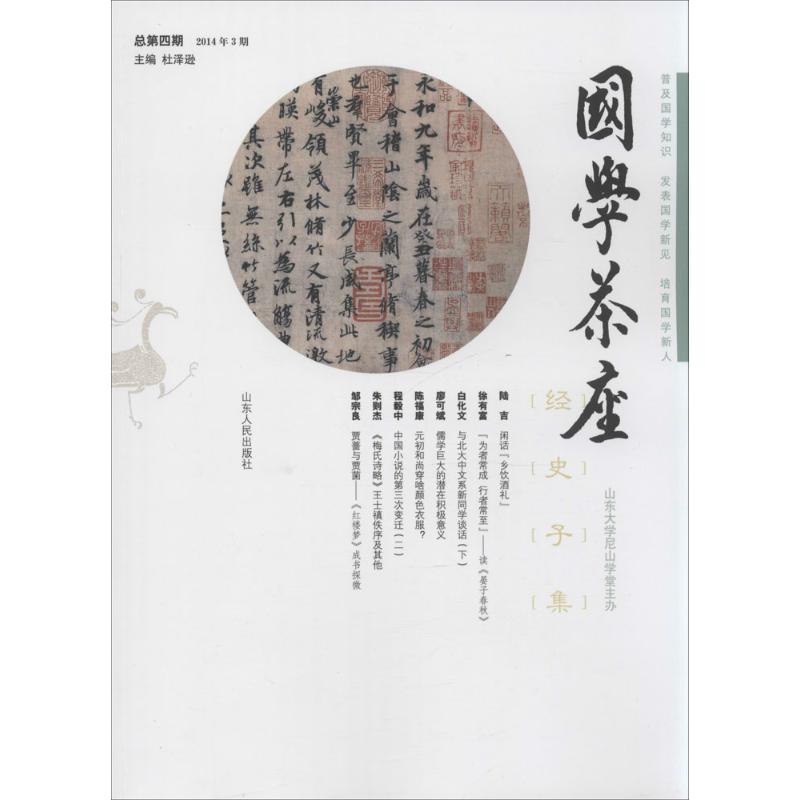 总第四期 2014年3期
主编 杜泽逊
普及国学知识 发表国学新见 培育国学新人
國學茶座
[经]
[史]
[子]
[集]
山东大学尼山学堂主办
永和九年歲在癸丑暮春之初會
于會稽山陰之蘭亭脩稧事
也羣賢畢至少長咸集此地
崇山
有峻領茂林脩竹又有清流激
暎帶左右引以為流觴曲
其次雖無絲竹管
陆 吉 闲话「乡饮酒礼」
徐有富 「为者常成 行者常至」——读《晏子春秋》
白化文 与北大中文系新同学谈话（下）
廖可斌 儒学巨大的潜在积极意义
陈福康 元初和尚穿啥颜色衣服？
程毅中 中国小说的第三次变迁（二）
朱则杰 《梅氏诗略》王士禛佚序及其他
邹宗良 贾蔷与贾菌——《红楼梦》成书探微
山东人民出版社